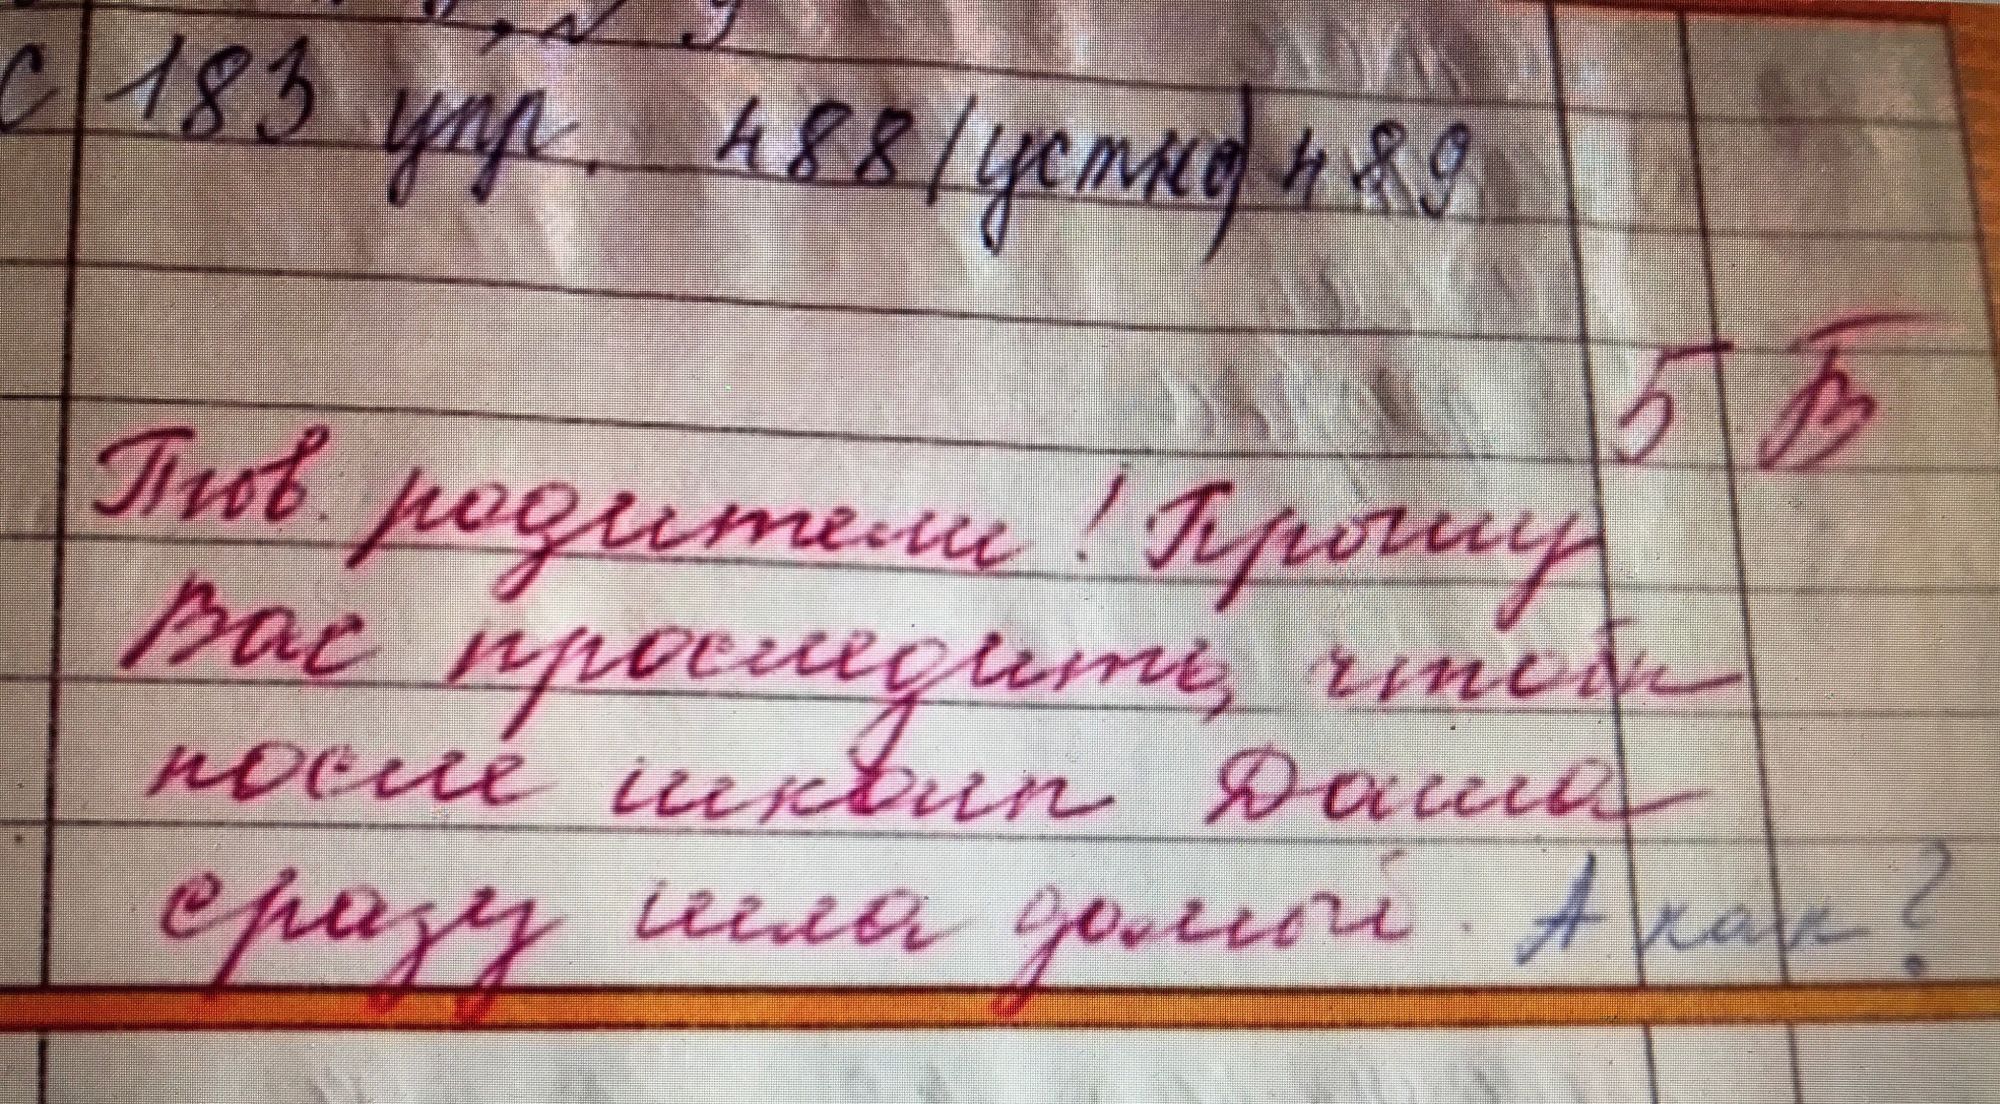 с 183 упр. 488 (устно) 489
5 В
Тов. родители! Прошу
Вас проследить, чтобы
после школы Даша
сразу шла домой. А как?